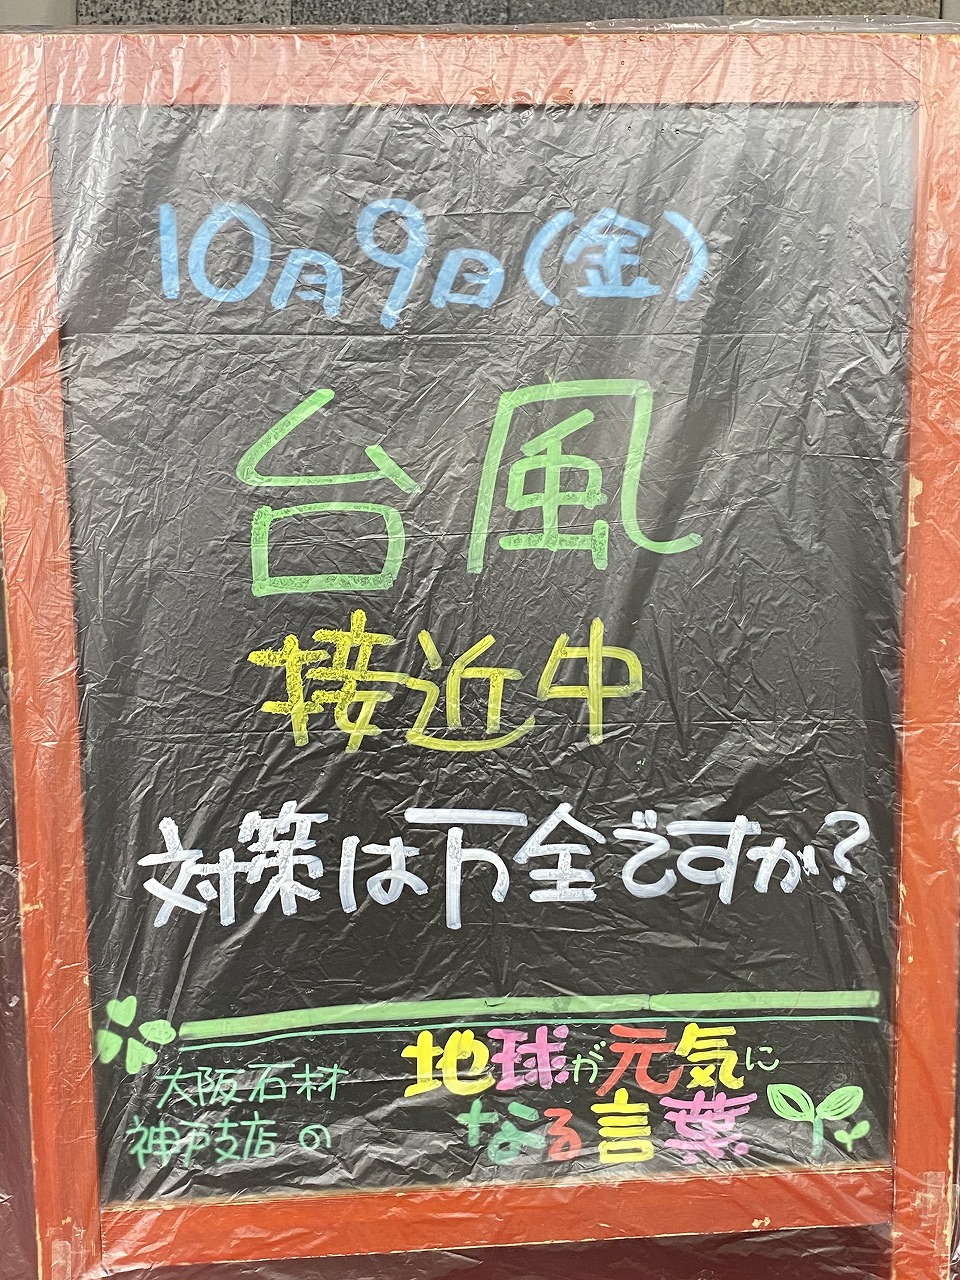 10月9日(金)
台風
接近中
対策は万全ですか?
大阪石材
神戸支店の
地球が元気に
なる言葉